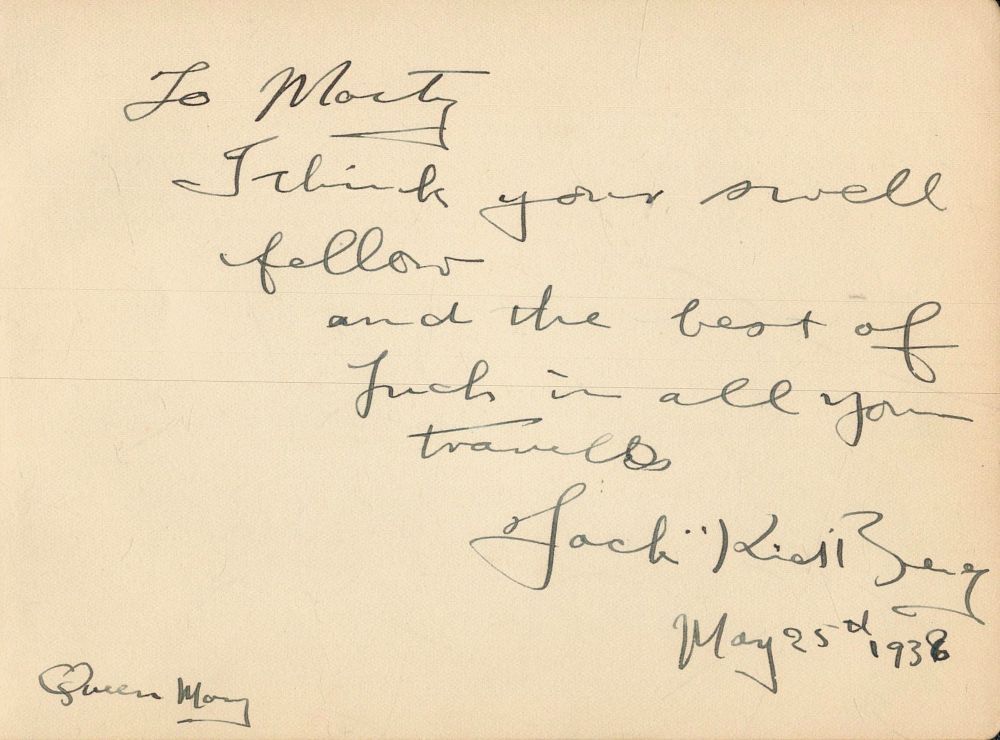 To Marty
I think your swell
fellow
and the best of
luck in all your
travells
Jack "Kid" Berg
May 25d 1938
Queen Mary